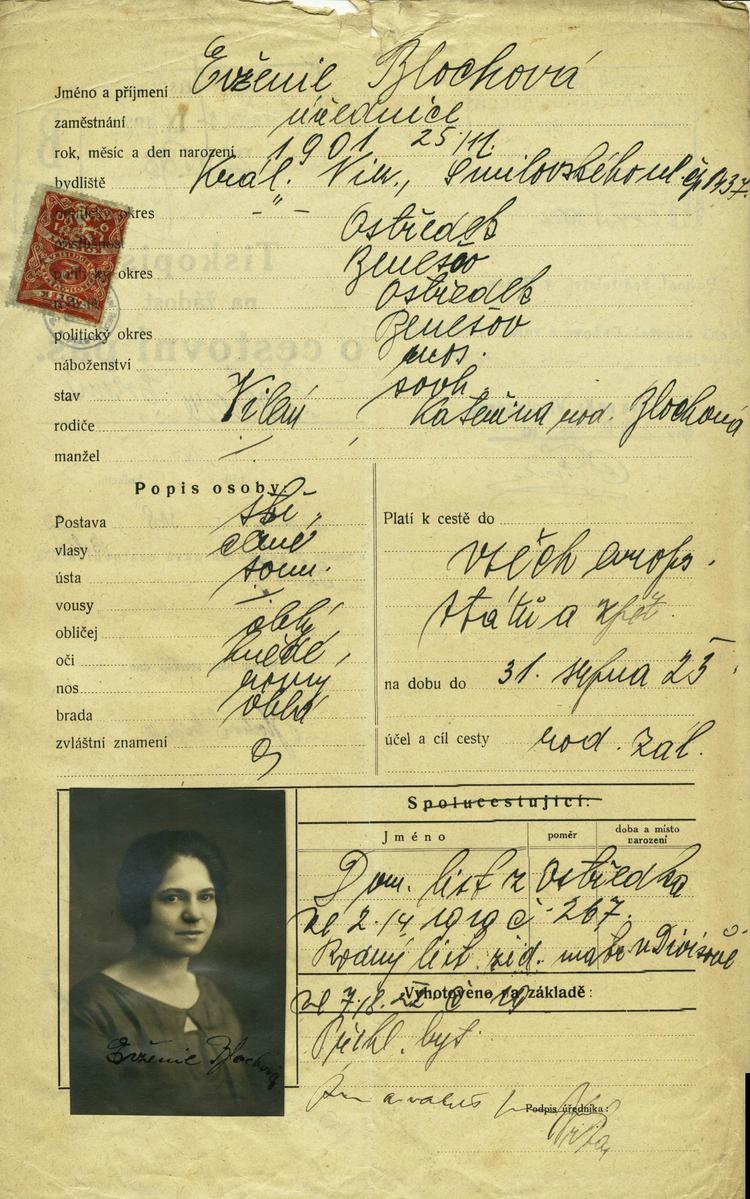 Jméno a příjmení Evženie Blochová
zaměstnání úřednice
rok, měsíc a den narození 1901 25/11.
bydliště Král. Vin., Smilovského ul čp 1437.
politický okres -"-
Ostředek
politický okres Benešov
Ostředek
politický okres Benešov
náboženství mos.
stav svob.
rodiče Vilém, Kateřina rod. Blochová
manžel /
Popis osoby:
Postava stř.
vlasy černé
ústa soum.
vousy /
obličej oblý
oči hnědé
nos rovný
brada oblá
zvláštní znamení
Platí k cestě do
všech evrops.
států a zpět.
na dobu do 31. srpna 25
účel a cíl cesty rod. zál.
Spolucestující:
Jméno
poměr
doba a místo narození
Dom. list z Ostředka
ze 2./4 1919 č. 267.
Rodný list žid. matr. v Divišově
Vyhotoveno na základě:
ze 7./8.
Přihl. byt.
Podpis úředníka:
Evženie Blochová